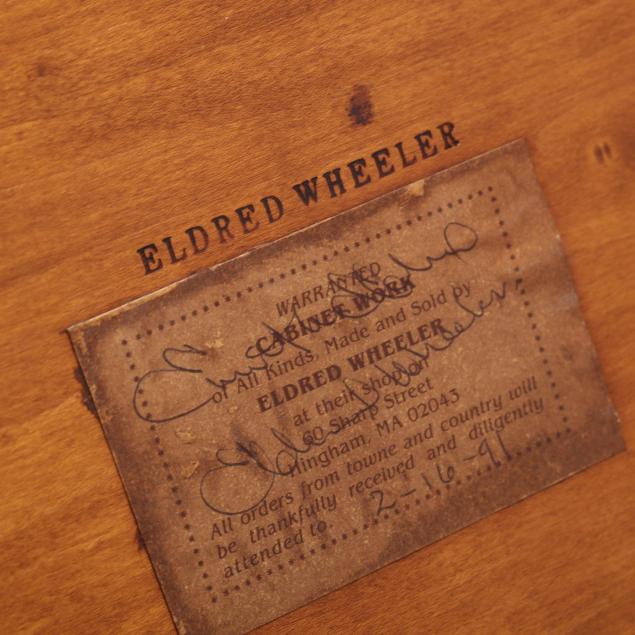 ELDRED WHEELER
WARRANTED
CABINET WORK
of All Kinds, Made and Sold by
ELDRED WHEELER
at their shop on
60 Sharp Street
Hingham, MA 02043
All orders from towne and country will
be thankfully received and diligently
attended to.
Eldred Wheeler
2-16-91